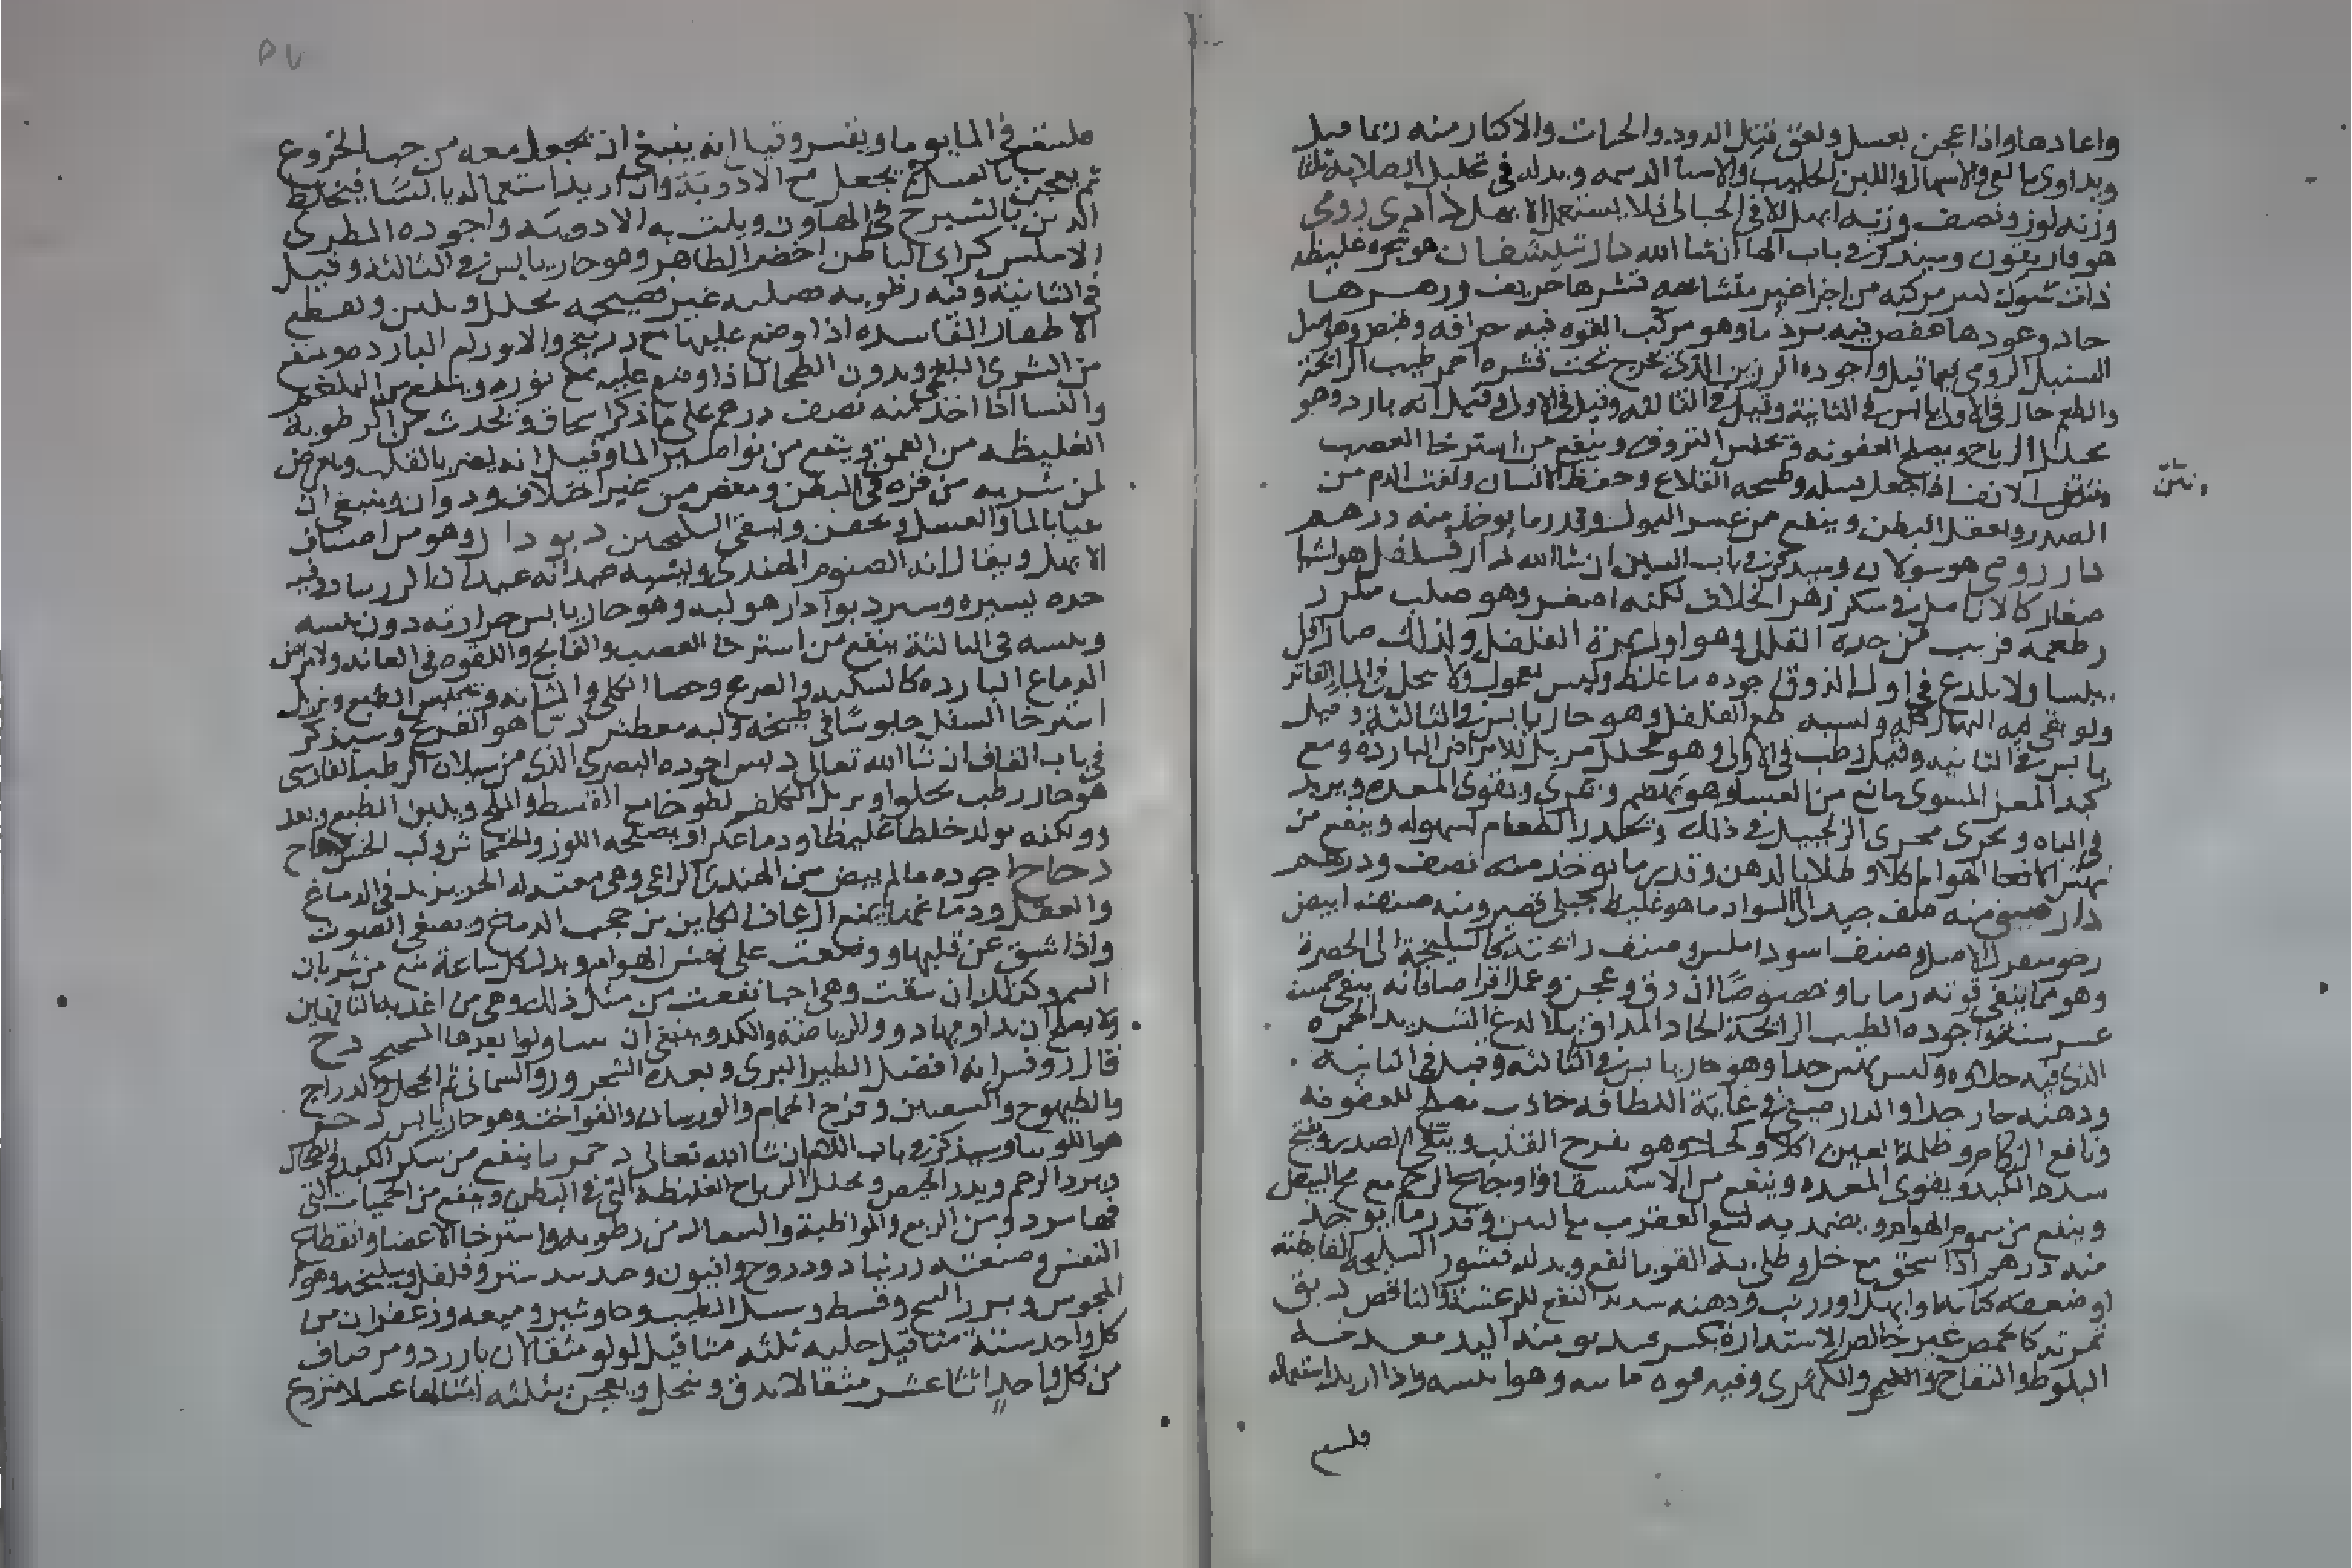 واعادها واذا عجن بعسل ولعق قتل الدود والحيات والاكثار منه ربما قتل
ويداوى بالقي والاسهال واللبن الحليب والاشيا الدسمة وبدله في تحليل الصلابة ثلثا
وزنه لوز ونصف وزنه ابهل الا في الحبالى فلا يستعمل الابهل دادى رومى
هو فاريقون وسيذكر في باب الها ان شا الله دارشيشغان هو شجره غليظه
ذات شوك مركبه من اجزا غير متشابهه قشرها حريف وزهرها
حاد وعودها عفص فيه برد ما وهو مركب القوه فيه حرافه وقبض
السنبل الرومى فيما قيل واجوده الرزين الذى يخرج تحت قشره احمر طيب الرائحة
والطعم حار في الاولى يابس في الثانية وقيل في الثالثه وقيل في الاولى وقيل انه بارد وهو
يحلل الرياح ويصلح العفونه ويحبس النزوف وينفع من استرخا العصب
ونتن
الانف اذا جعل فتيله وطبيخه القلاع وحفظ الاسنان ونفث الدم من
الصدر ويعقل البطن وينفع من عسر البول وقدر ما يوخذ منه درهم
دار رومى هو سولان وسيذكر في باب السين ان شا الله دار فلفل هو اشيا
صغار كالانامل في شكل زهر الخلاف لكنه اصغر وهو صلب مكرر
وطعمه قريب من حدة الفلفل وهو اول ثمرة الفلفل ولذلك صار اقل
يبسا ولا يلدغ في اول الذوق اجوده ما غلظ وليس بمعمول ولا يحل في الما الفاتر
ولو بقى فيه النهار كله ويشبه طعم الفلفل وهو حار يابس في الثالثة وقيل
يابس في الثانيه وقيل رطب في الاولى وهو محلل مزيل للامراض البارده ومع
كبد المعز المشوى مانع من العشا وهو يهضم ويمرى ويقوى المعده ويزيد
في الباه ويجرى مجرى الزنجبيل في ذلك ويحدر الطعام بسهوله وينفع من
نهش الافعا الهوام اكلا وطلا بالدهن وقدر ما يوخذ منه نصف ودرهم
دار صينى منه صنف جيد الى السواد ما هو غليظ جبلى قصير ومنه صنف ابيض
رخو الاصل وصنف اسود املس وصنف رائحته كالسليخة الى الحمرة
وهو مما يبقى قوته زمانا وخصوصًا ان دق وعجن وعمل اقراصا فانه يبقى خمسة
عشر سنة واجوده الطيب الرائحة الحاد المذاق بلا لدغ الشديد الحمره
الذى فيه حلاوه وليس جدا وهو حار يابس في الثالثه وقيل في الثانيه
ودهنه حار جدا والدار صينى في غاية اللطافه جاذب يصلح للعفونه
ونافع الزكام وظلمة العين اكلا وكحلا وهو يفرح القلب وينقى الصدر ويفتح
سدد الكبد ويقوى المعده وينفع من الاستسقا واوجاع الرحم مع مح البيض
وينفع من سموم الهوام ويضمد به لسع العقرب مع التين وقدر ما يوخذ
منه درهم اذا سحق مع خل وطلى به القوبا نفع وبدله قشور السليخه القابضة
او ضعفه كبابه او ابهل او زرنب ودهنه شديد النفع للرعشة والنافض دبق
ثمرته كالحمص غير خالص الاستدارة
البلوط والتفاح والكمثرى وفيه قوه مائيه وهوائيه واذا اريد استعماله
فلينقع
٥٧
فلينقع في الما يوما ويقشر وقيل انه ينبغى ان يجعل معه من حب الخروع
ثم يعجن بالعسل يجعل مع الادوية وان اريد استعماله يابسًا فيخلط
الدبق بالشيرج في الهاون ويلت به الادويه واجوده الطرى
الاملس كراى الباطن اخضر الظاهر وهو حار يابس في الثالثة وقيل
في الثانيه وفيه رطوبه فضليه غير نضيجه يحلل ويلين ويقطع
الاظفار الفاسده اذا وضع عليها مع زرنيخ والاورام البارده وينفع
من الشرى البلغمى ويذوب الطحال اذا وضع عليه مع نوره وينفع من البلغم
والنسا اذا اخذ منه نصف درهم على ما ذكر اسحاق ويجذب من الرطوبة
الغليظه من العمق وينفع من نواصير الماق وقيل انه يضر بالقلب ويعرض
لمن شربه من قره في البطن ومغص من غير اختلاف ودوار وينبغى ان
يقيا بالما والعسل ويحقن ويسقى السكنجبين ديودار وهو من اصناف
الابهل ويقال انه الصنوبر الهندى ويشبه عيدان الزراوند فيه
حده يسيره وشير ديودار هو لبنه وهو حار يابس حرارته دون يبسه
ويبسه في الثالثة ينفع من استرخا العصب والفالج واللقوه في الغايه ولامراض
الدماغ البارده كالسكته والصرع وحصا الكلى والمثانه ويحبس الطبع ويزيل
استرخا السفل جلوسًا في طبيخه ولبنه معطش دبا هو القرع وسيذكر
في باب القاف ان شا الله تعالى دبس اجوده البصرى الذى من سيلان الرطب الفارسى
هو حار رطب يجلو ويزيل الكلف لطوخا مع القسط والملح ويلين الطبع
ولكنه يولد خلطا غليظا ودما عكرا ويصلحه اللوز والخشخاش
دجاج اجوده ما لم يبيض من الهندى الراعى وهى معتدله الحر يزيد في الدماغ
والعقل ودماغها يمنع الرعاف الكاين من حجب الدماغ ويصفى الصوت
واذا شق عن قلبها ووضعت على نهش الهوام وبدل كل ساعة منع من شريان
السم وكذلك ان شقت وهى احيا نفعت من مثل ذلك وهى من اغذية الناقهين
ولا يصلح ان يداومها ذوو الرياضة والكد وينبغى ان يتناولوا بعدها دراج
قال روفس انه افضل الطير البرى وبعده الشحرور والسمانى ثم الحجل والدراج
والطيهوج والشفنين وفرخ الحمام والورشان والفواخت وهو حار يابس دجر
هو اللوبيا وسيذكر في باب اللام ان شا الله تعالى دحمرثا ينفع من سدد الكبد والطحال
وبرد الرحم ويدر الحيض ويحلل الرياح الغليظه التى في البطن وينفع من الحميات التى
فيها برد ومن الربع والمواظبة والسعال من رطوبه واسترخا الاعضا وانقطاع
النفس وصنعته زرنباد ودرونج وافيون وجندبيدستر وفلفل وسليخه
وقسط وسنبل الطيب وجاوشير وميعه وزعفران من
كل واحد ستة مثاقيل حلبه ثلثه مثاقيل لولو مثقالان بارزد ومر صاف
من كل واحد اثنا عشر مثقالا يدق وينخل ويعجن بثلثه امثالها عسلا منزوع